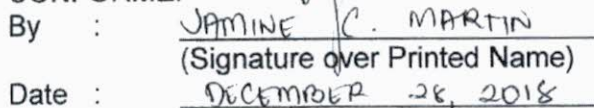 By : JAMINE C. MARTIN
(Signature over Printed Name)
Date : DECEMBER 28, 2018